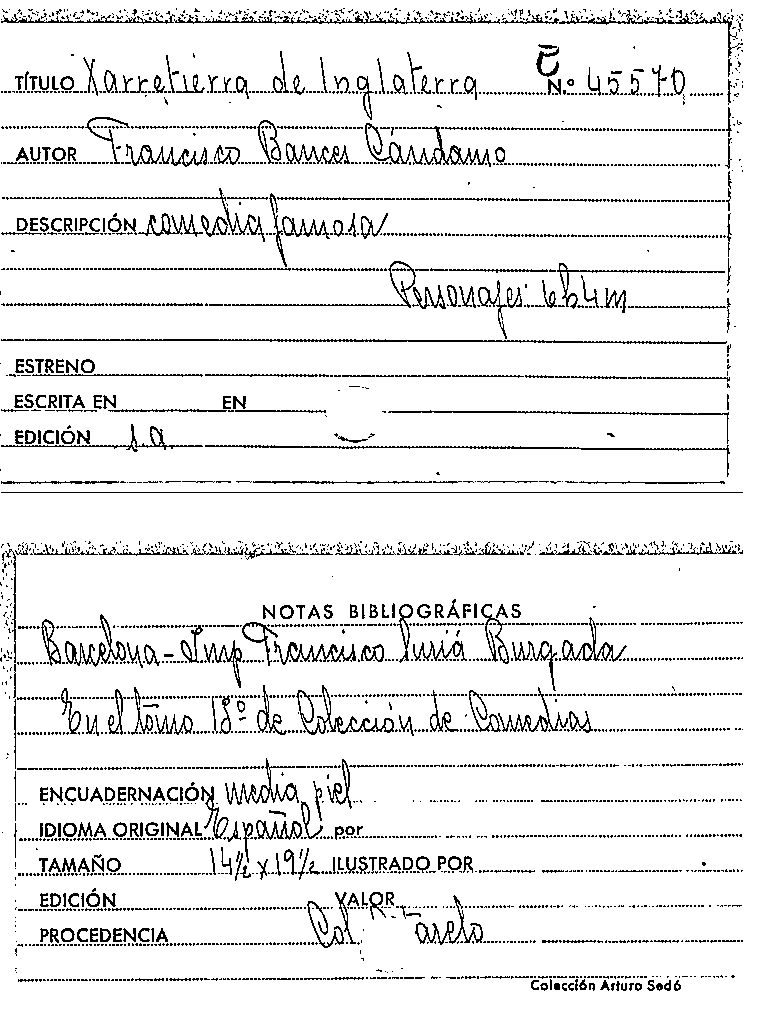 C
TÍTULO Xarretierra de Inglaterra N.º 45570
AUTOR Francisco Bances Cándamo
DESCRIPCIÓN comedia famosa
Personajes: 6h 4m
ESTRENO
ESCRITA EN EN
EDICIÓN s.a.
NOTAS BIBLIOGRÁFICAS
Barcelona - Imp Francisco Suriá Burgada
En el tomo 18º de Colección de Comedias
ENCUADERNACIÓN media piel
IDIOMA ORIGINAL Español por
TAMAÑO 14½ x 19½ ILUSTRADO POR
EDICIÓN VALOR
PROCEDENCIA Col.
Colección Arturo Sedó